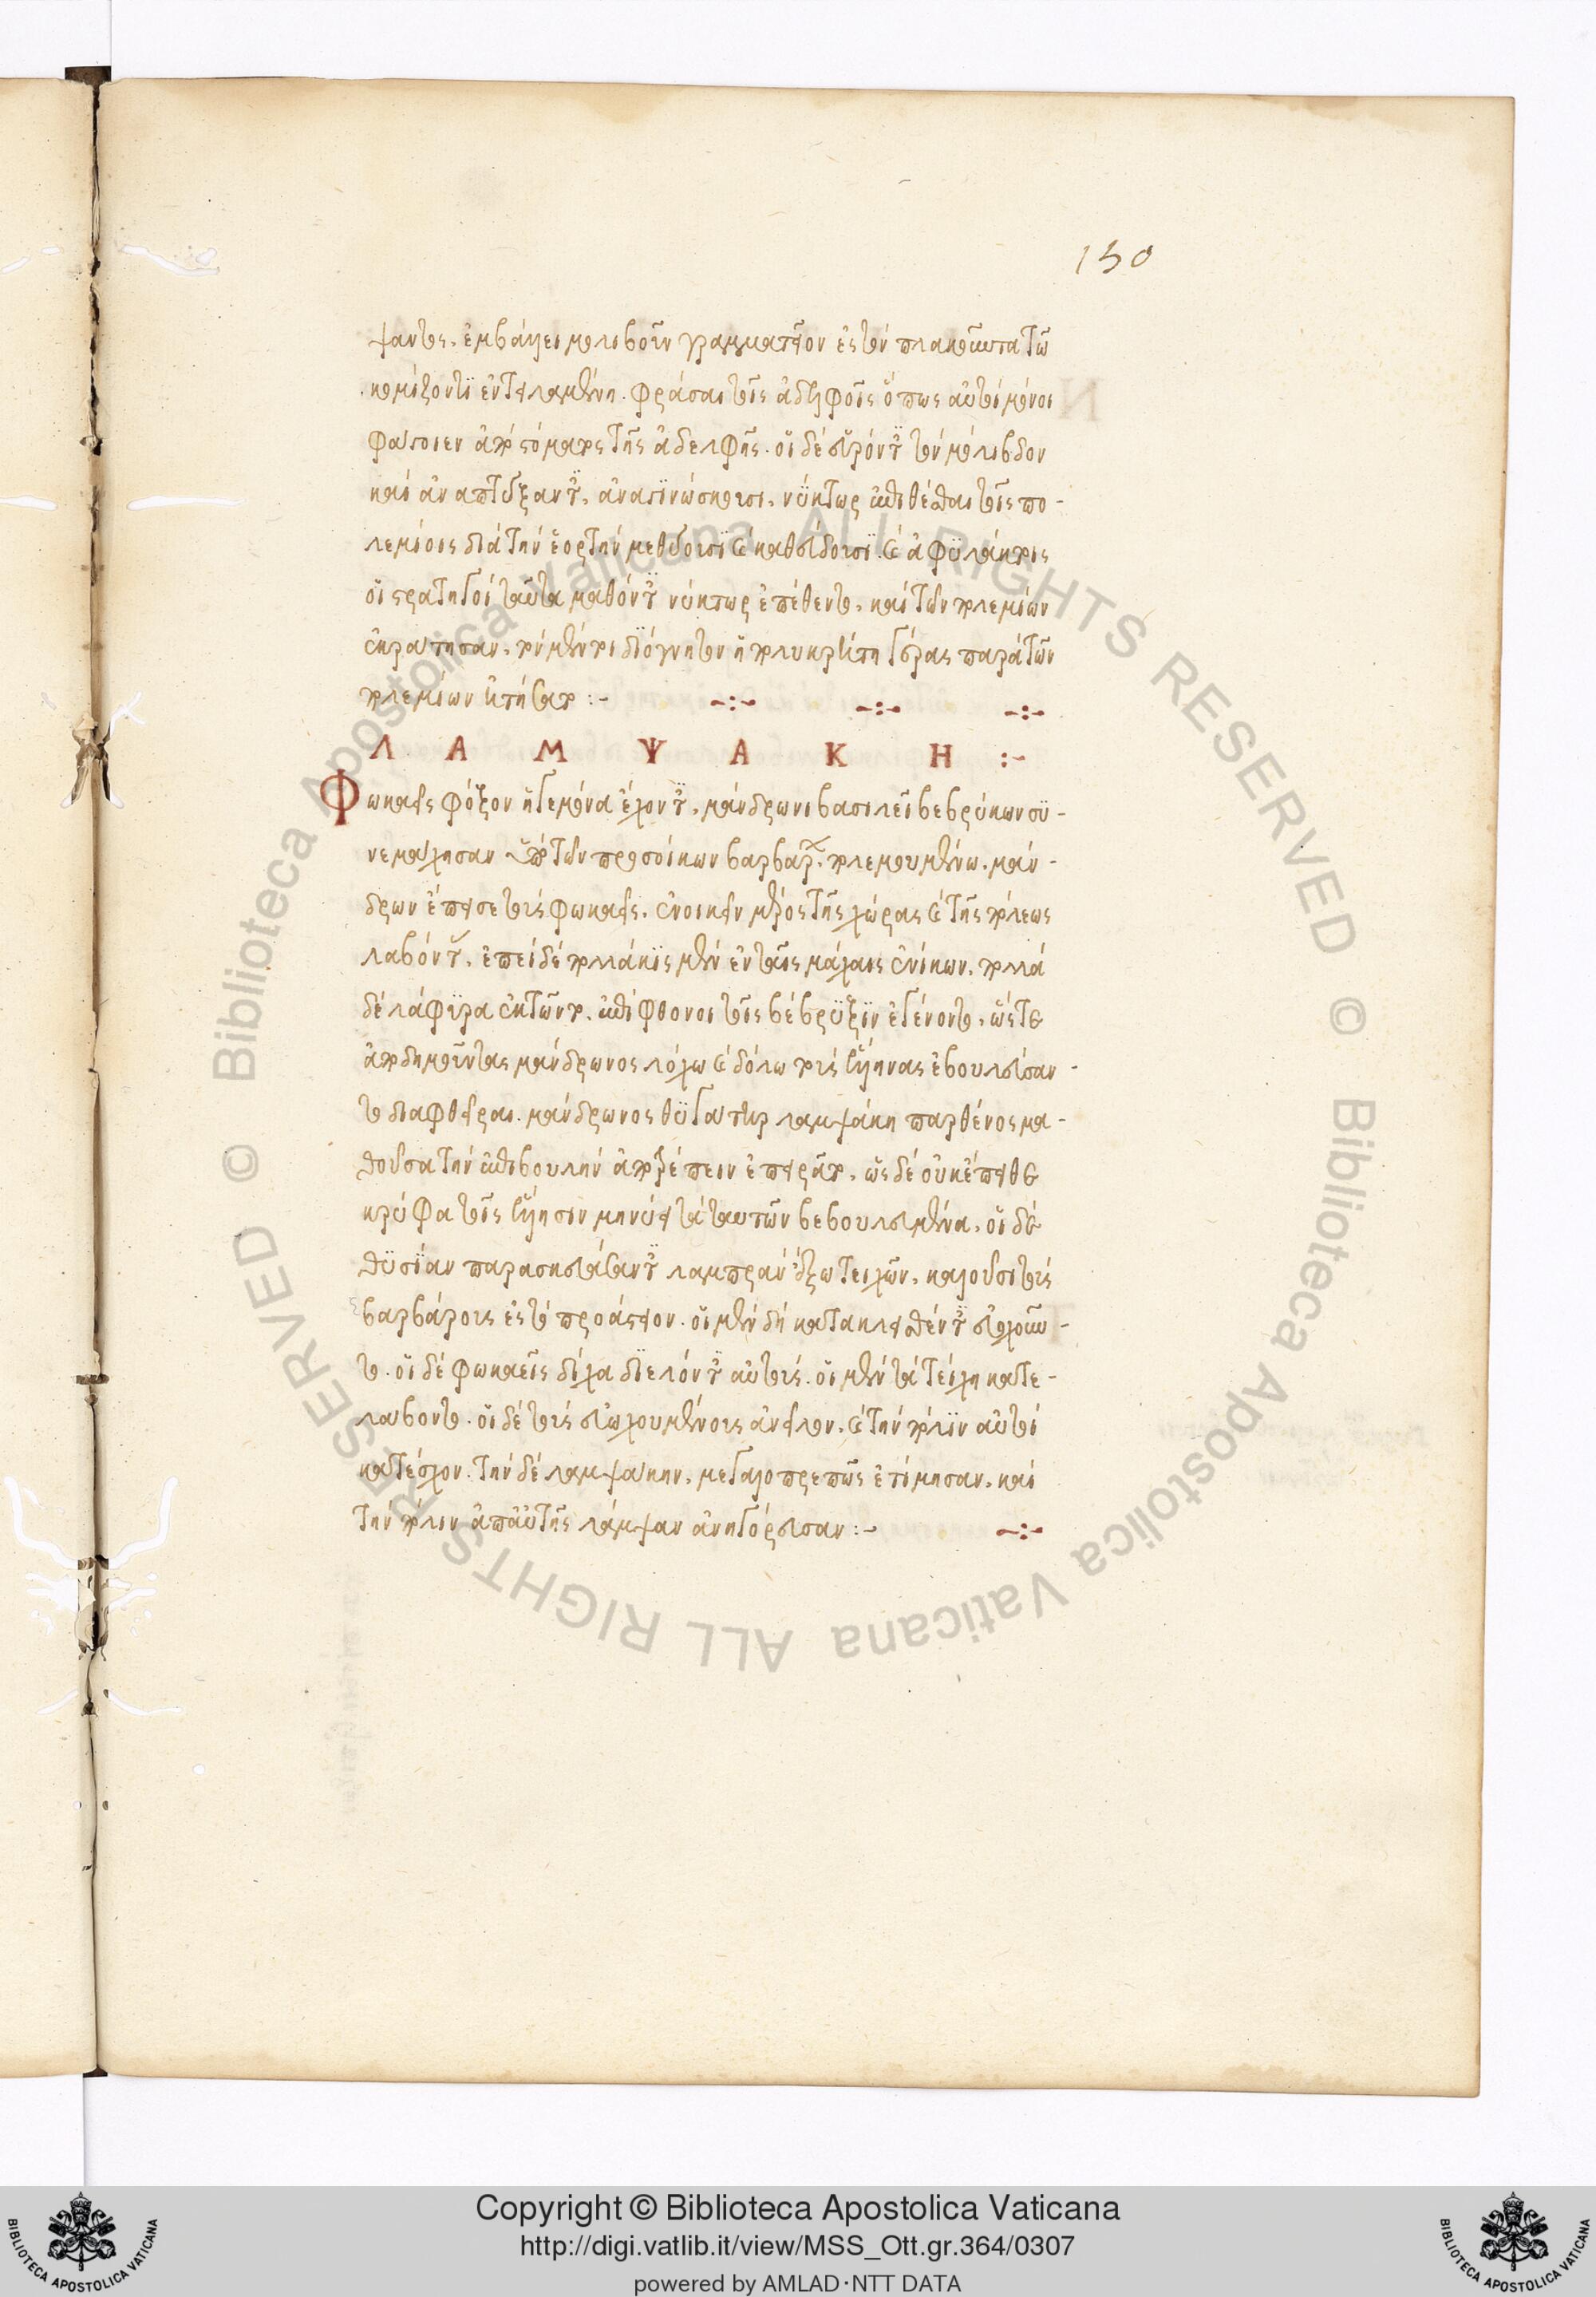 150
ψαντος. ἐμβάλλει μολιβοῦν γραμματεῖον ἐς τὸν πλακοῦντα τῶ
κομίζοντι ἐντειλαμένη. φράσαι τοῖς ἀδελφοῖς ὅπως αὐτοὶ μόνοι
φάγοιεν ἀπὸ στόματος τῆς ἀδελφῆς. οἱ δὲ εὑρόντες τὸν μόλιβδον
καὶ ἀναπτύξαντες, ἀναγινώσκουσι, νύκτωρ ἐπιθέσθαι τοῖς πο-
λεμίοις διὰ τὴν ἑορτὴν μεθύουσι καὶ καθεύδουσι. καὶ ἀφυλάκτοις
οἱ στρατηγοὶ ταῦτα μαθόντες νύκτωρ ἐπέθεντο, καὶ τῶν πολεμίων
ἐκράτησαν, τὸν μέντοι διόγνητον ἡ πολυκρίτη γέρας παρὰ τῶν
πολεμίων ᾐτήσατο :-
ΛΑΜΨΑΚΗ :-
Φωκαεῖς φόξον ἡγεμόνα ἔχοντες, μάνδρωνι βασιλεῖ βεβρύκων συ-
νεμάχησαν ὑπὸ τῶν προσοίκων βαρβάρων πολεμουμένω. μάν-
δρων ἔπεισε τοὺς φωκαεῖς. ἐνοικεῖν μέρος τῆς χώρας καὶ τῆς πόλεως
λαβόντας. ἐπεὶ δὲ πολλάκις μὲν ἐν ταῖς μάχαις ἐνίκων. πολλὰ
δὲ λάφυρα ἐκτῶντο. ἐπίφθονοι τοῖς βέβρυξιν ἐγένοντο, ὥστε
ἀποδημοῦντος μάνδρωνος λόχω καὶ δόλω τοὺς ἕλληνας ἐβουλεύσαν-
το διαφθεῖραι. μάνδρωνος θυγάτηρ λαμψάκη παρθένος μα-
θοῦσα τὴν ἐπιβουλὴν ἀποτρέπειν ἐπειρᾶτο, ὡς δὲ οὐκ ἔπειθε
κρύφα τοῖς ἕλλησιν μηνύει τὰ κατ' αὐτῶν βεβουλευμένα. οἱ δὲ
θυσίαν παρασκευάσαντες λαμπρὰν ἔξω τειχῶν, καλοῦσι τοὺς
βαρβάρους ἐς τὸ προάστειον. οἱ μὲν δὴ κατακλιθέντες εὐωχοῦν-
το. οἱ δὲ φωκαεῖς δίχα διελόντες αὑτοὺς. οἱ μὲν τὰ τείχη κατε-
λάβοντο. οἱ δὲ τοὺς εὐωχουμένους ἀνεῖλον, καὶ τὴν πόλιν αὐτοὶ
κατέσχον. τὴν δὲ λαμψάκην, μεγαλοπρεπῶς ἐτίμησαν, καὶ
τὴν πόλιν ἀπ' αὐτῆς λάμψαν ἀνηγόρευσαν :-
Copyright © Biblioteca Apostolica Vaticana
http://digi.vatlib.it/view/MSS_Ott.gr.364/0307
powered by AMLAD·NTT DATA